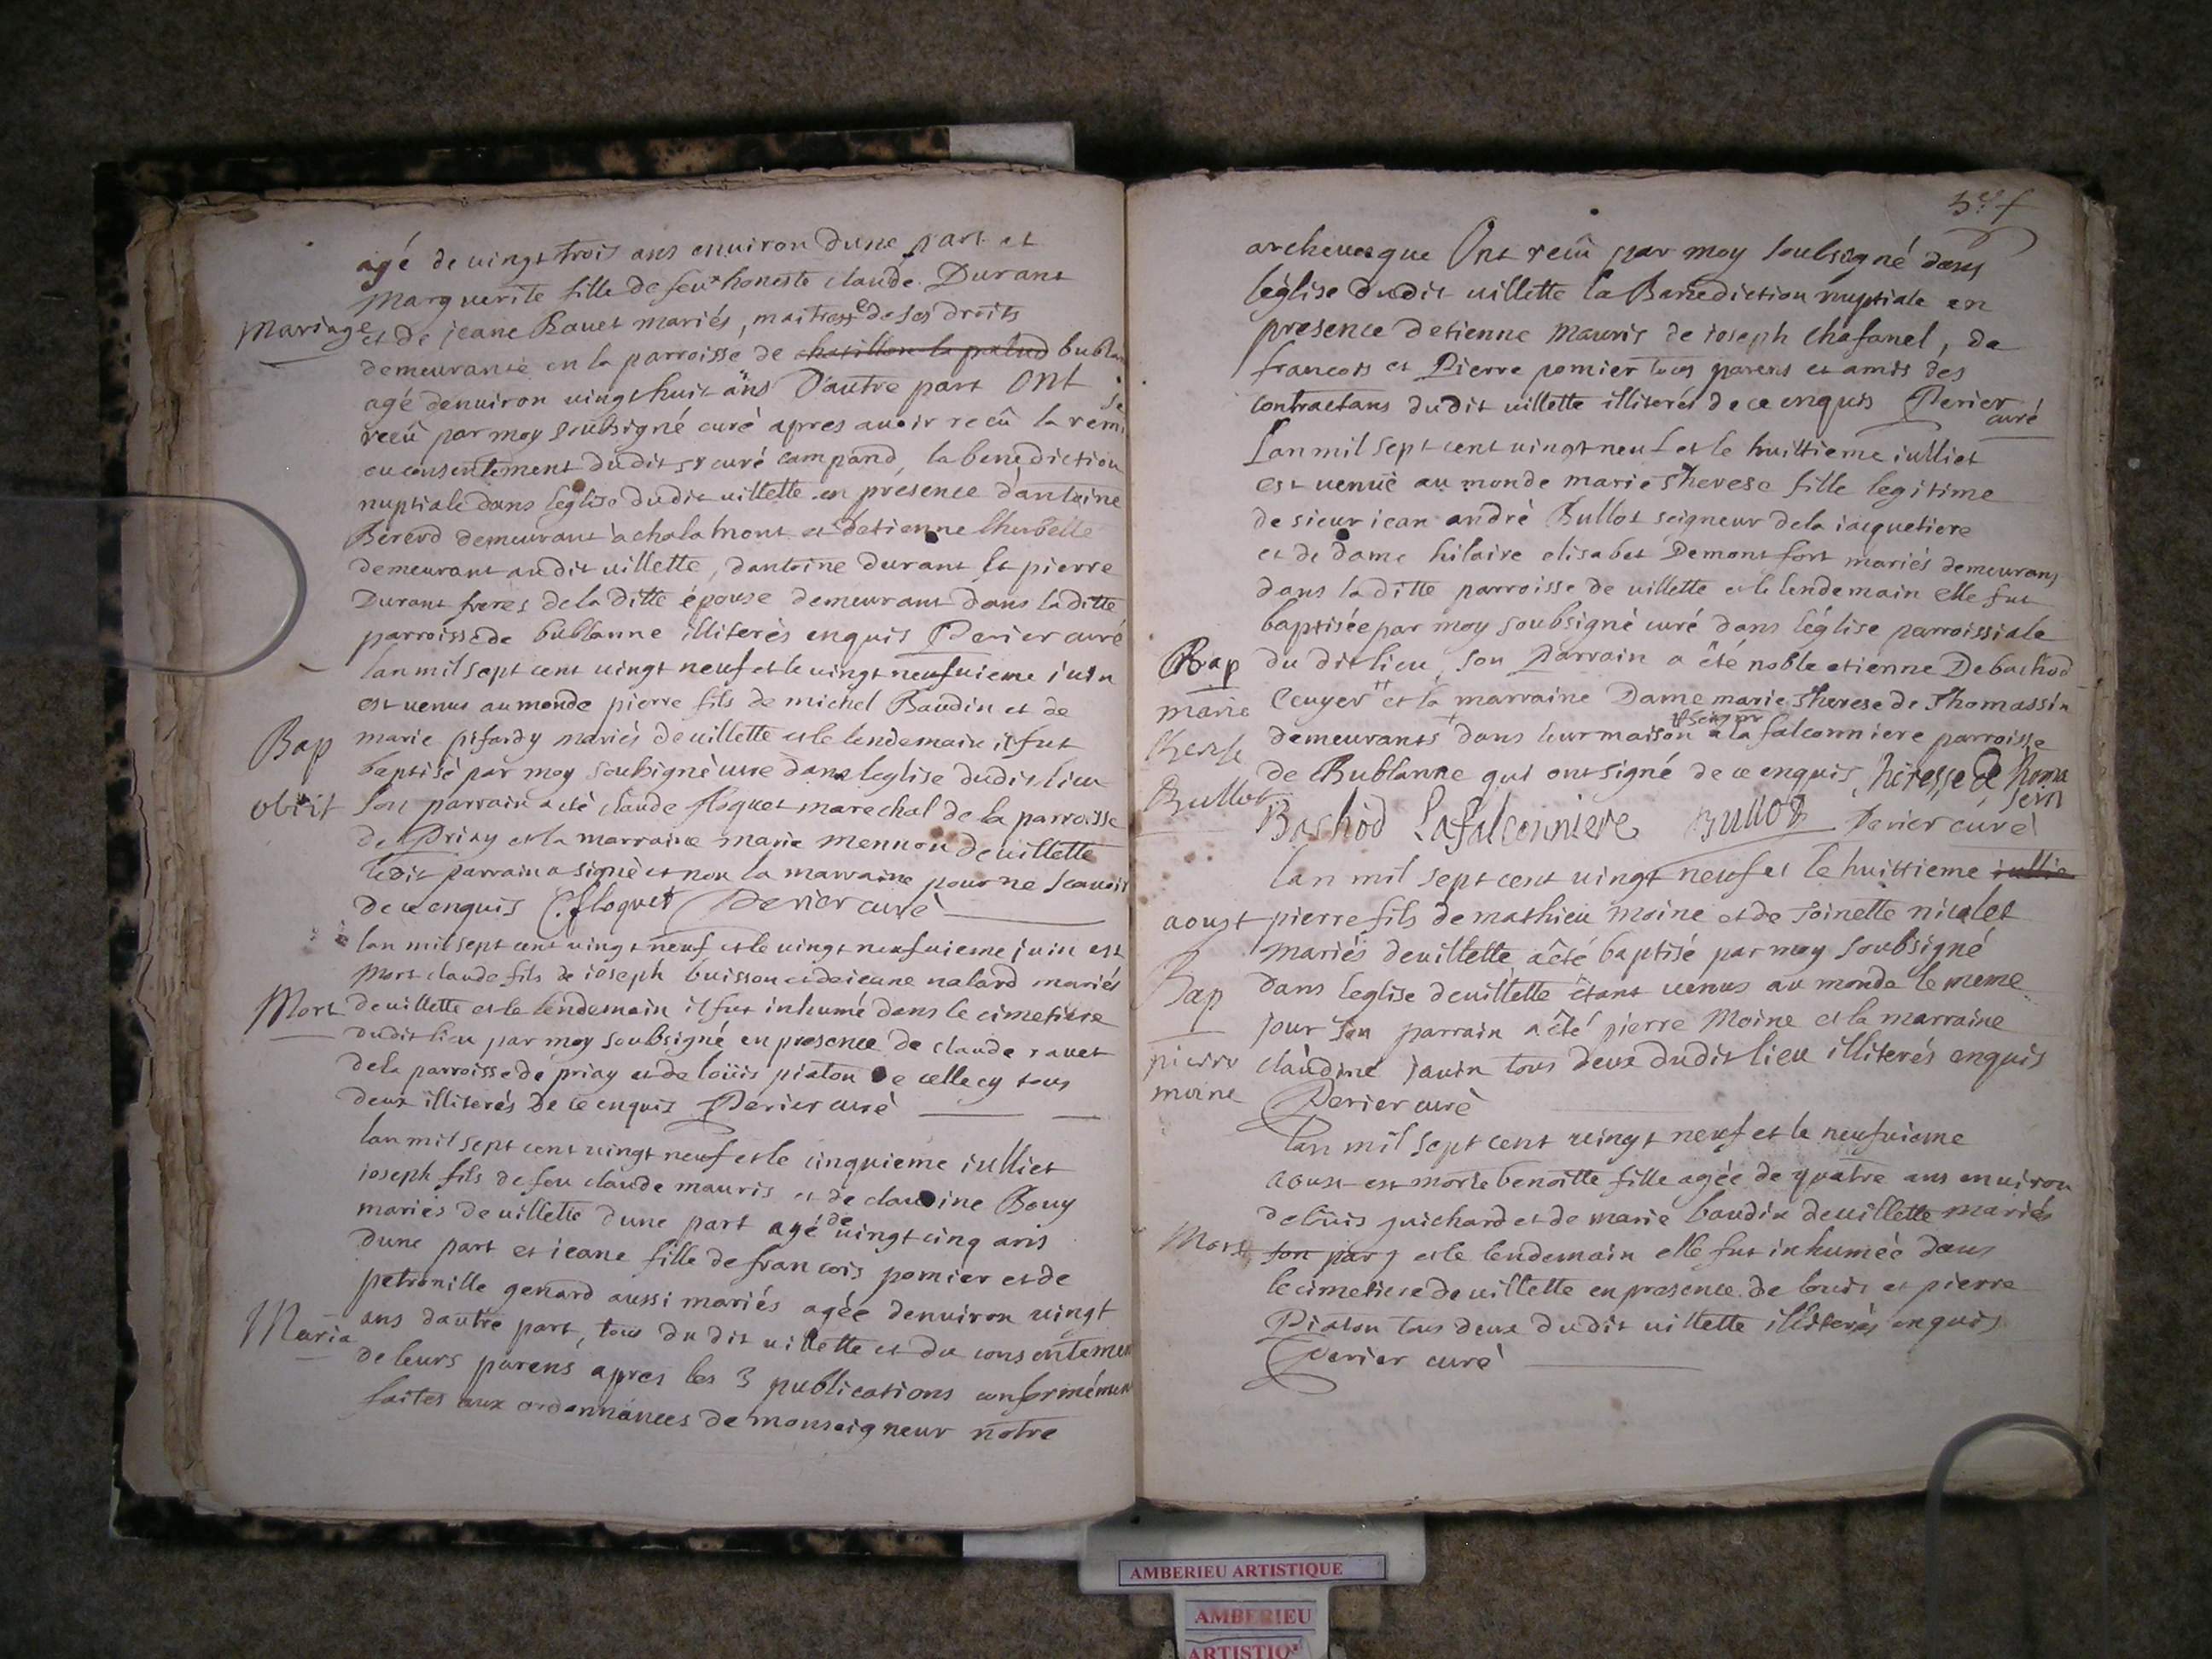 agé de uingt trois ans enuiron dune part et
Marguerite fille de feu honeste claude Durant
Mariage
et de jeane Bauet mariés, maitresse de ses droits
demeurante en la parroisse de chatillon la palud bublan
agé denuiron uingt huit ans D'autre part ont
reçû par moy soubsigné curé apres auoir reçû la remi se
ou consentement dudit sr curé campand, la benediction
nuptiale dans leglise dudit uillette en presence dantoine
Bererd demeurant à chalamont et detienne lherbelle
demeurant audit uillette, dantoine durant et pierre
Durant freres de la ditte épouse demeurant dans laditte
parroisse de bublanne illiterés enquis Perier curé
lan mil sept cent uingt neuf et le uingt neufuieme juin
est uenus au monde pierre fils de michel Baudin et de
Bap
marie pifardy mariés de uillette et le lendemain il fut
baptisé par moy soubsigné curé dans leglise dudit lieu
obiit
son parrain a été claude floquet marechal de la parroisse
de Priay et la marraine marie mennon de uillette
ledit parrain a signé et non la marraine pour ne scauoir
de ce enquis C. floquet Perier curé
lan mil sept cent uingt neuf et le uingt neufuieme juin est
mort claude fils de ioseph buisson et de ieane nalard mariés
Mort
de uillette et le lendemain il fut inhumé dans le cimetiere
dudit lieu par moy soubsigné en presence de claude rauet
de la parroisse de priay et de loüis piaton de celle cy tous
deux illiterés de ce enquis Perier curé
lan mil sept cent uingt neuf et le cinquieme iulliet
ioseph fils de feu claude mauris et de claudine Bouy
mariés de uillette dune part agé de uingt cinq ans
dune part et ieane fille de francois pomier et de
petronille genard aussi mariés agée denuiron uingt
Maria
ans dautre part, tous du dit uillette et du consentemen
de leurs parens apres les 3 publications conformémen
faites aux ordonnances de monseigneur notre
archeuesque Ont reçû par moy soubsigné dans
léglise dudit uillette la Benediction nuptiale en
presence detienne mauris de ioseph Chafanel, de
francois et Pierre pomier tous parens et amis des
contractans dudit uillette illiterés de ce enquis Perier
curé
Lan mil sept cent uingt neuf et le huittieme iulliet
est uenüe au monde marie Therese fille legitime
de sieur iean andrè Bullot seigneur dela iacquetiere
et de dame hilaire elisabet Demontfort mariés demeurans
dans la ditte parroisse de uillette et le lendemain elle fut
baptisée par moy soubsigné curé dans léglise parroissiale
Bap
du dit lieu, son Parrain a été noble etienne Debachod
marie
Ecuyer et la marraine Dame marie Therese de Thomassin
seigneur
therese
demeurants dans leur maison a la falconniere parroisse
Bullot
de Bublanne qui ont signé de ce enquis, héresse de thoma
sein
Bachod Lafalconniere Bullot Perier curé
lan mil sept cent uingt neuf et le huittieme iullie
aoust pierre fils de mathieu moine et de toinette nicolet
mariés deuillette a été baptisé par moy soubsigné
Bap
dans leglise deuillette étant uenus au monde le meme
jour son parrain a été pierre Moine et la marraine
pierre
claudine jauin tous deux dudit lieu illiterés enquis
moine
Perier curé
lan mil sept cent uingt neuf et le neufuieme
aoust est morte benoitte fille agée de quatre ans enuiron
de loüis guichard et de marie baudin deuillette mariés
Mort
son par et le lendemain elle fut inhumée dans
le cimetiere de uillette en presence de louis et pierre
Piaton tous deux dudit uillette illiterés enquis
Perier curé
AMBERIEU ARTISTIQUE
AMBERIEU
ARTISTIQ